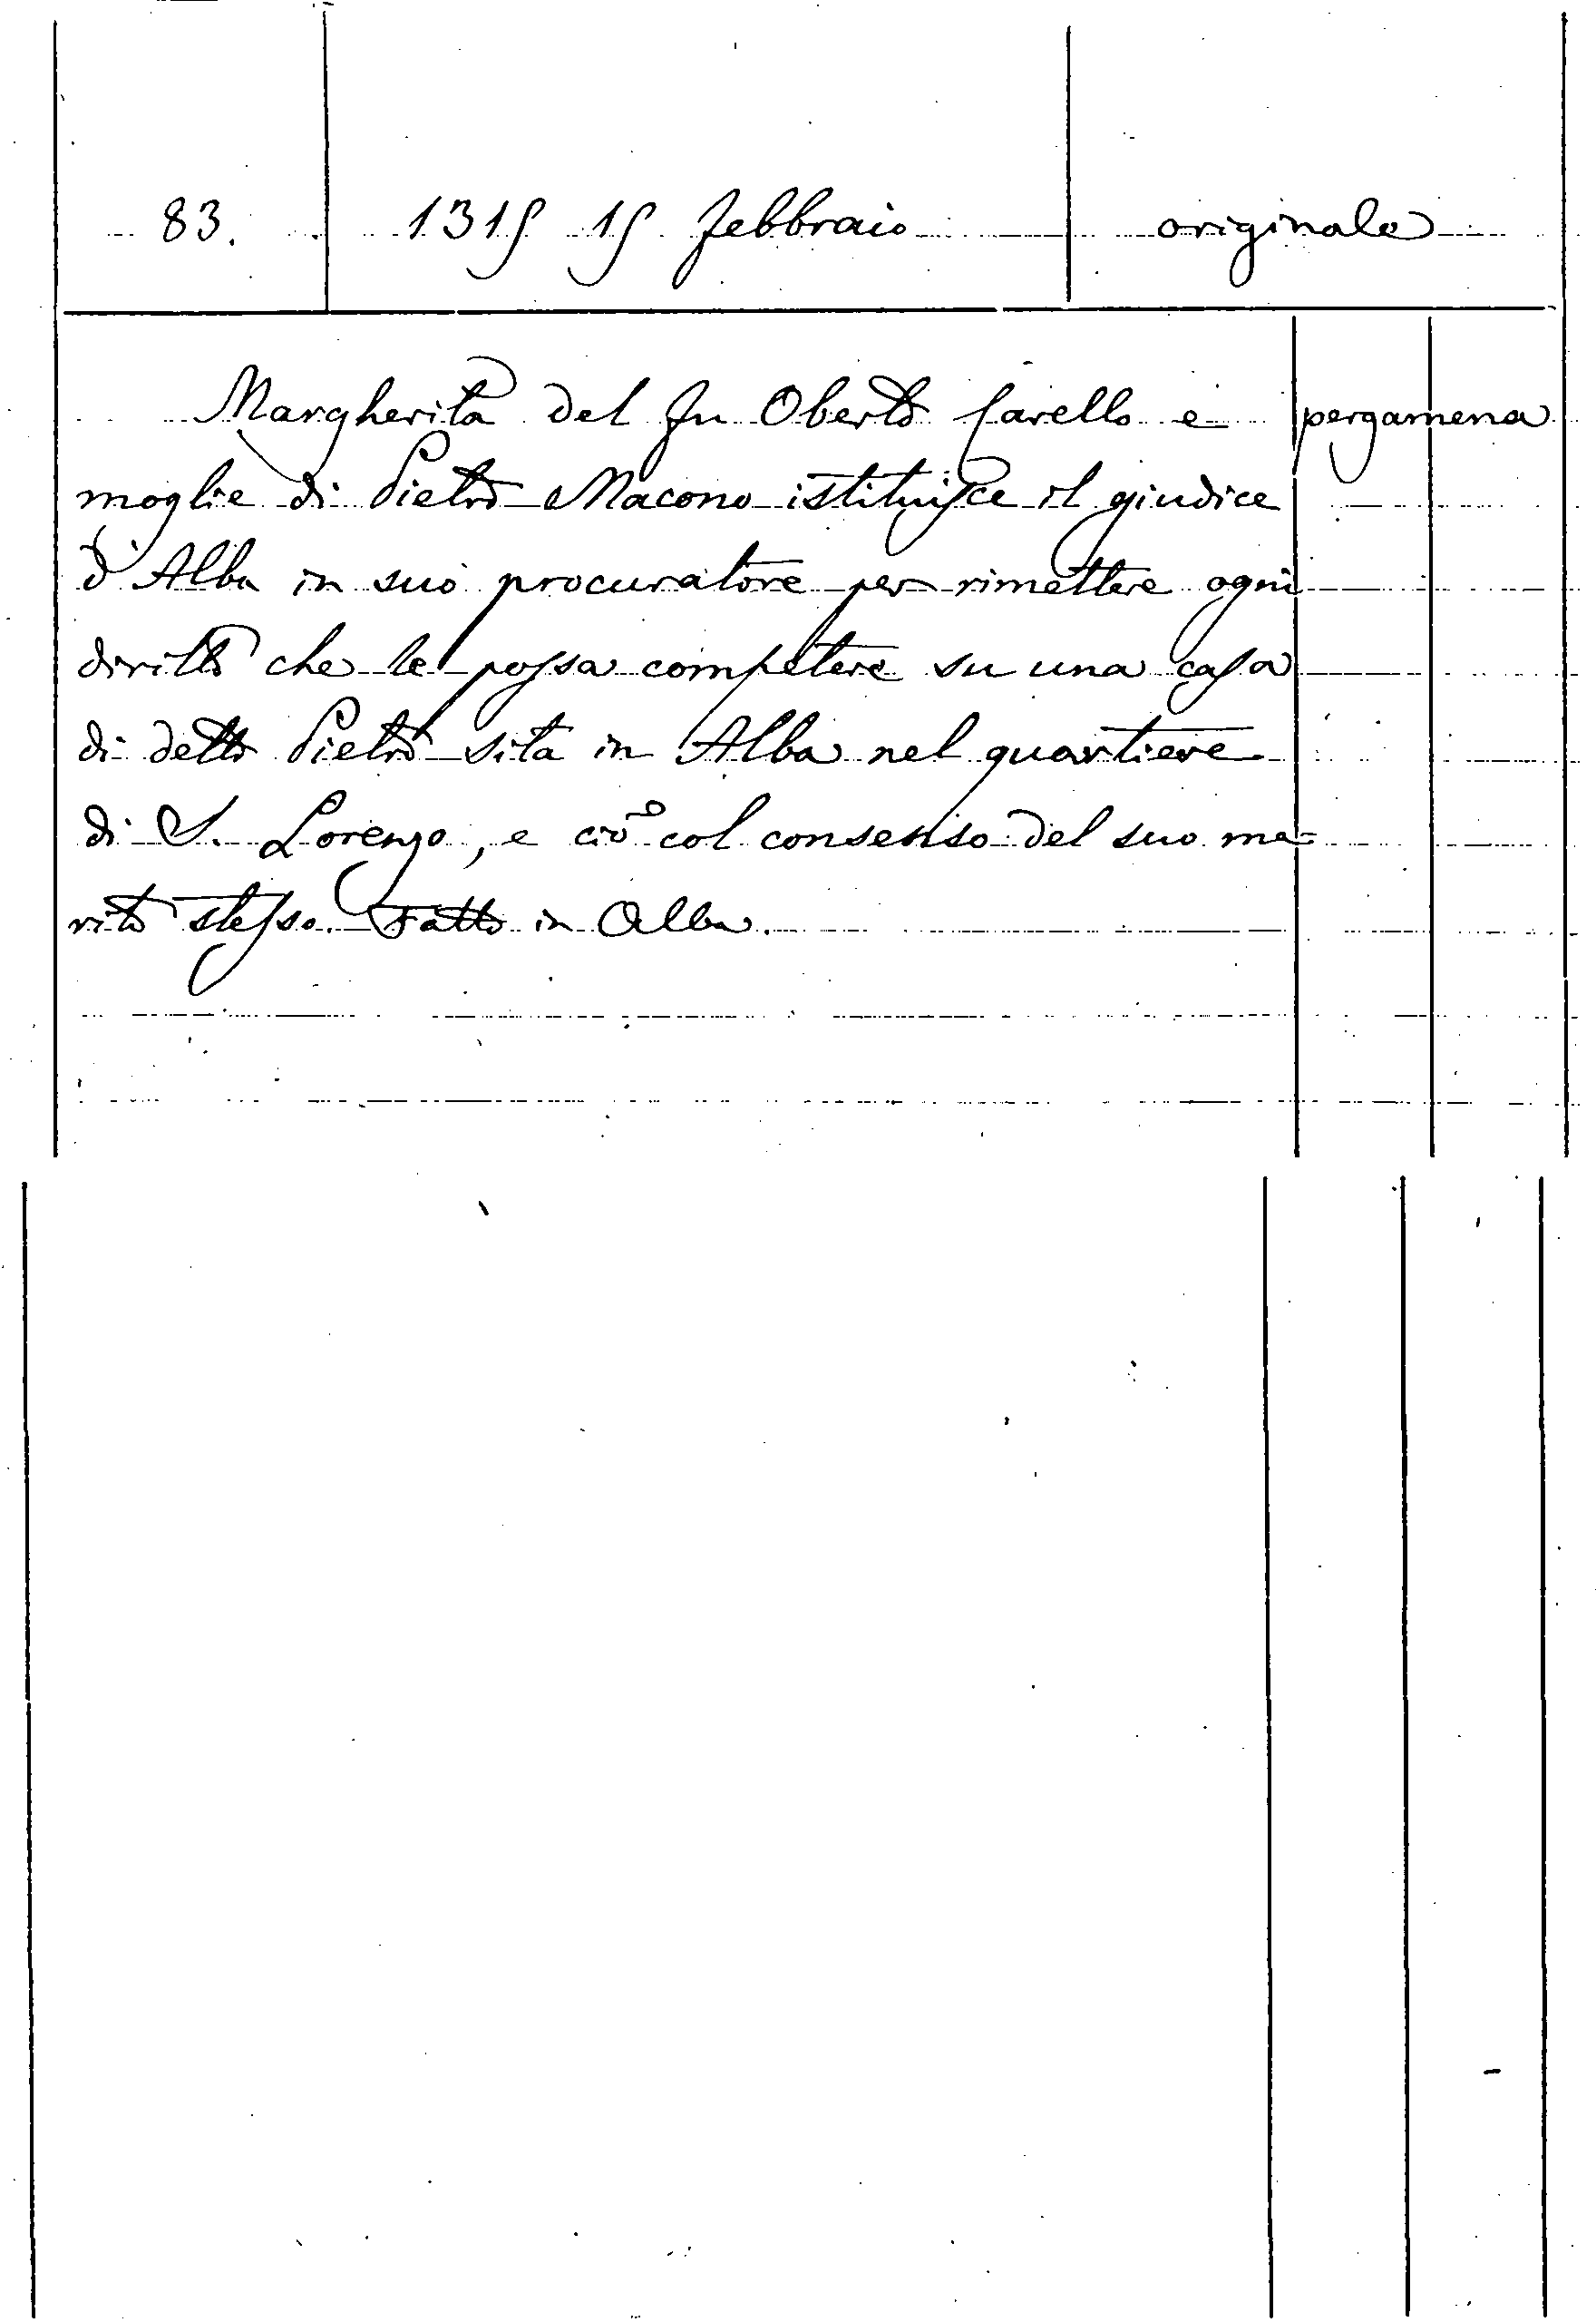 83. 1315 15 febbraio originale
Margherita del fu Oberto Carello e pergamena
moglie di Pietro Macono istituisce il giudice
d'Alba in suo procuratore per rimettere ogni
diritto che le possa competere su una casa
di detto Pietro sita in Alba nel quartiere
di S. Lorenzo, e ciò col consenso del suo ma=
rito stesso. Fatto in Alba.